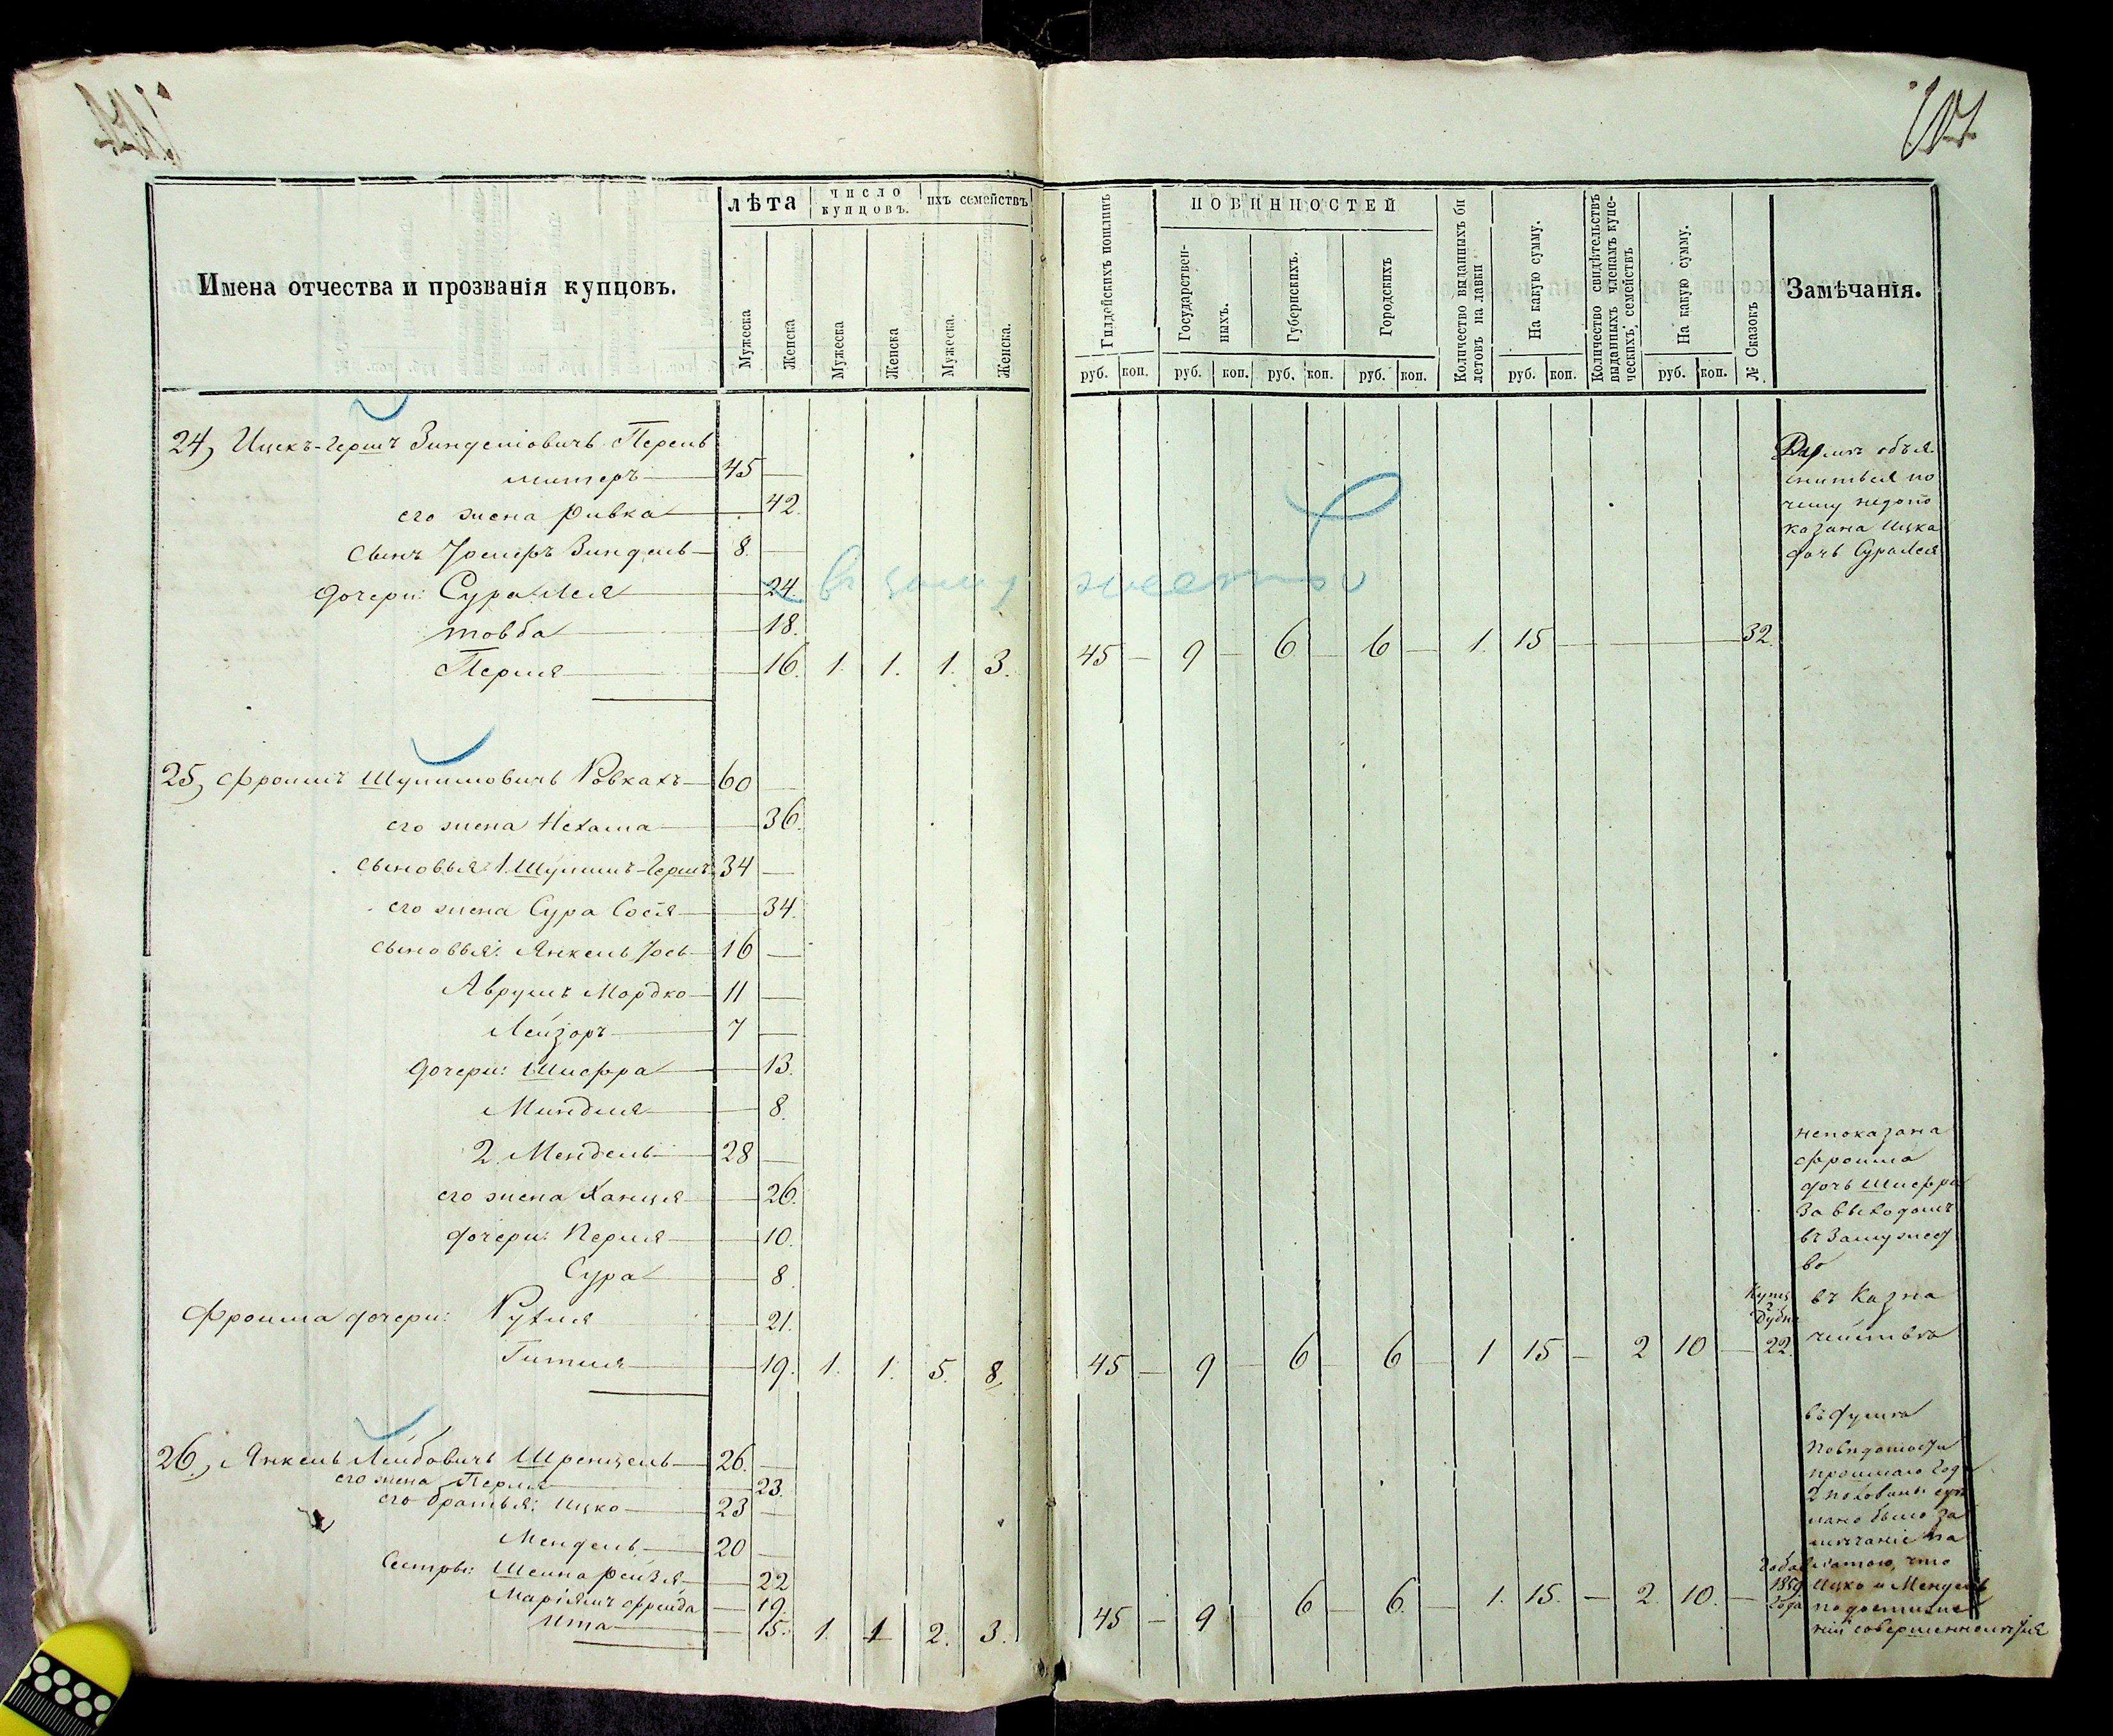 107
Имена отчества и прозванія купцовъ.
лѣта
число купцовъ.
ихъ семействъ
Мужеска
Женска
Мужеска
Женска
Мужеска.
Женска.
Гилдейскихъ пошлинъ
ПОВИННОСТЕЙ
Государствен-
ныхъ.
Губернскихъ.
Городскихъ
Количество выданныхъ би
летовъ на лавки
На какую сумму.
Количество свидѣтельствъ
выданныхъ членамъ купе-
ческихъ, семействъ
На какую сумму.
№ Сказокъ
Замѣчанія.
руб. коп. руб. коп. руб. коп. руб. коп. руб. коп. руб. коп.
24, Ицекъ-Гершъ Зинделіовичъ Перель
митеръ 45 —
его жена Ривка 42.
сынъ Іосифъ Зиндель 8. —
дочери: Сура Лея 24.
товба 18.
Перля 16. 1. 1. 1. 3. 45 — 9 — 6 — 6 — 1. 15 — 32.
объя
сниться по
чему недопо
казана Ицка
дочь Сура Лея
25, Фроимъ Шулимовичъ Ровкахъ 60 —
его жена Нехама 36.
сыновья: 1. Шулимъ-Гершъ 34 —
его жена Сура Сося 34.
сыновья: Янкель Іось 16 —
Аврумъ Мордко 11 —
Лейзоръ 7 —
дочери: Шифра 13.
Миндля 8.
2. Мендель 28 —
его жена Ханця 26.
дочери: Перля 10.
Сура 8.
Фроима дочери: Рухля 21.
Гитля 19. 1. 1. 5. 8. 45 — 9 — 6 — 6 — 1 15 — 2 10 — 22.
непоказана
Фроима
дочь Шифра
За выходомъ
въ Замужес
во
въ Казна
чействѣ
26, Янкель Лейбовичъ Шренцель 26. —
его жена Перля 23.
его братья: Ицко 23 —
Мендель 20 —
Сестры: Шейна рейзя 22
Маріямъ Фрейда 19.
Ита 15. 1. 1 2. 3. 45 — 9 6 — 6. — 1. 15. — 2. 10. —
1859
года
въ думѣ
По вѣдомости
прошлаго года
2 половины
лано было за
мѣчаніе
что
Ицко и Мендель
по достиже
ніи совершеннолѣтія